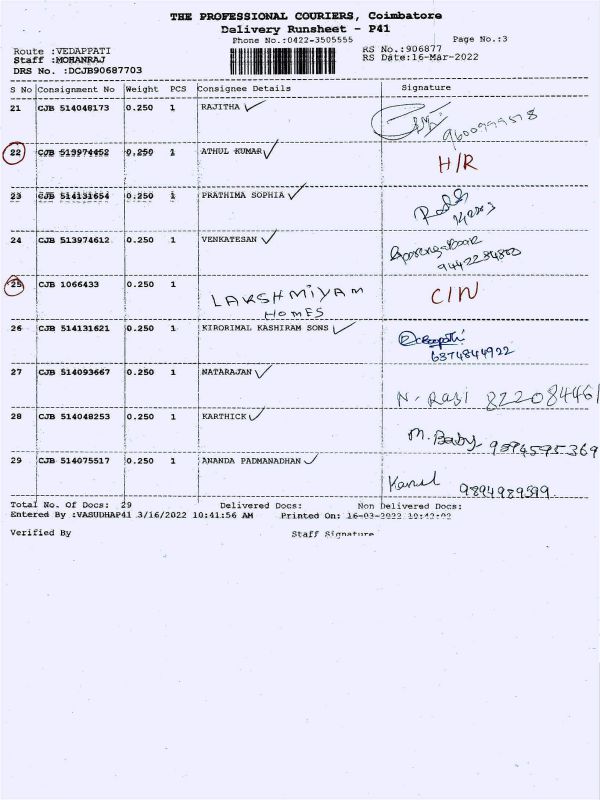 THE PROFESSIONAL COURIERS, Coimbatore
Delivery Runsheet - P41
Phone No.:0422-3505555 Page No.:3
Route :VEDAPPATI RS No.:906877
Staff :MOHANRAJ RS Date:16-Mar-2022
DRS No. :DCJB90687703
S No Consignment No Weight PCS Consignee Details Signature
21 CJB 514048173 0.250 1 RAJITHA 9600999578
22 CJB 513974452 0.250 1 ATHUL KUMAR H/R
23 CJB 514131654 0.250 1 PRATHIMA SOPHIA
24 CJB 513974612 0.250 1 VENKATESAN
25 CJB 1066433 0.250 1 LAKSHMIYAM C/N
HOMES
26 CJB 514131621 0.250 1 KIRORIMAL KASHIRAM SONS
6374844922
27 CJB 514093667 0.250 1 NATARAJAN
N. Rasi 822084461
28 CJB 514048253 0.250 1 KARTHICK
M. Baby 9894595369
29 CJB 514075517 0.250 1 ANANDA PADMANADHAN
9894989399
Total No. Of Docs: 29 Delivered Docs: Non Delivered Docs:
Entered By :VASUDHAP41 3/16/2022 10:41:56 AM Printed On: 16-03-2022 10:42:02
Verified By Staff Signature